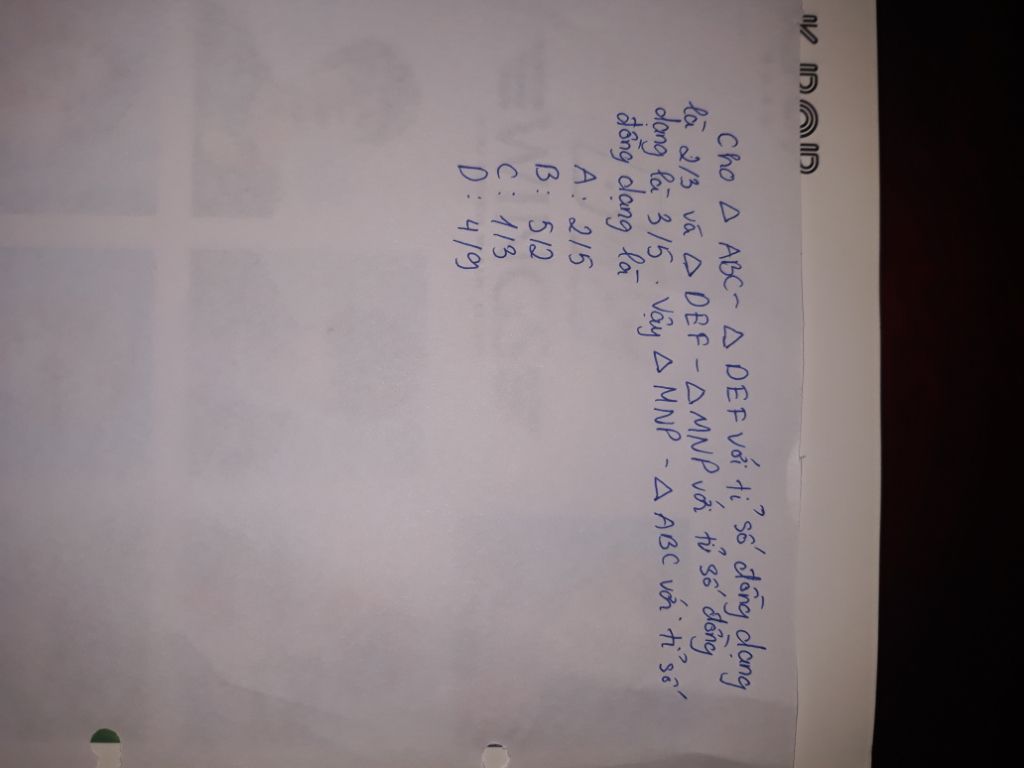 Cho △ ABC - △ DEF với tỉ số đồng dạng
là 2/3 và △ DEF - △ MNP với tỉ số đồng
dạng là 3/5. Vậy △ MNP - △ ABC với tỉ số
đồng dạng là
A: 2/5
B: 5/2
C: 1/3
D: 4/9